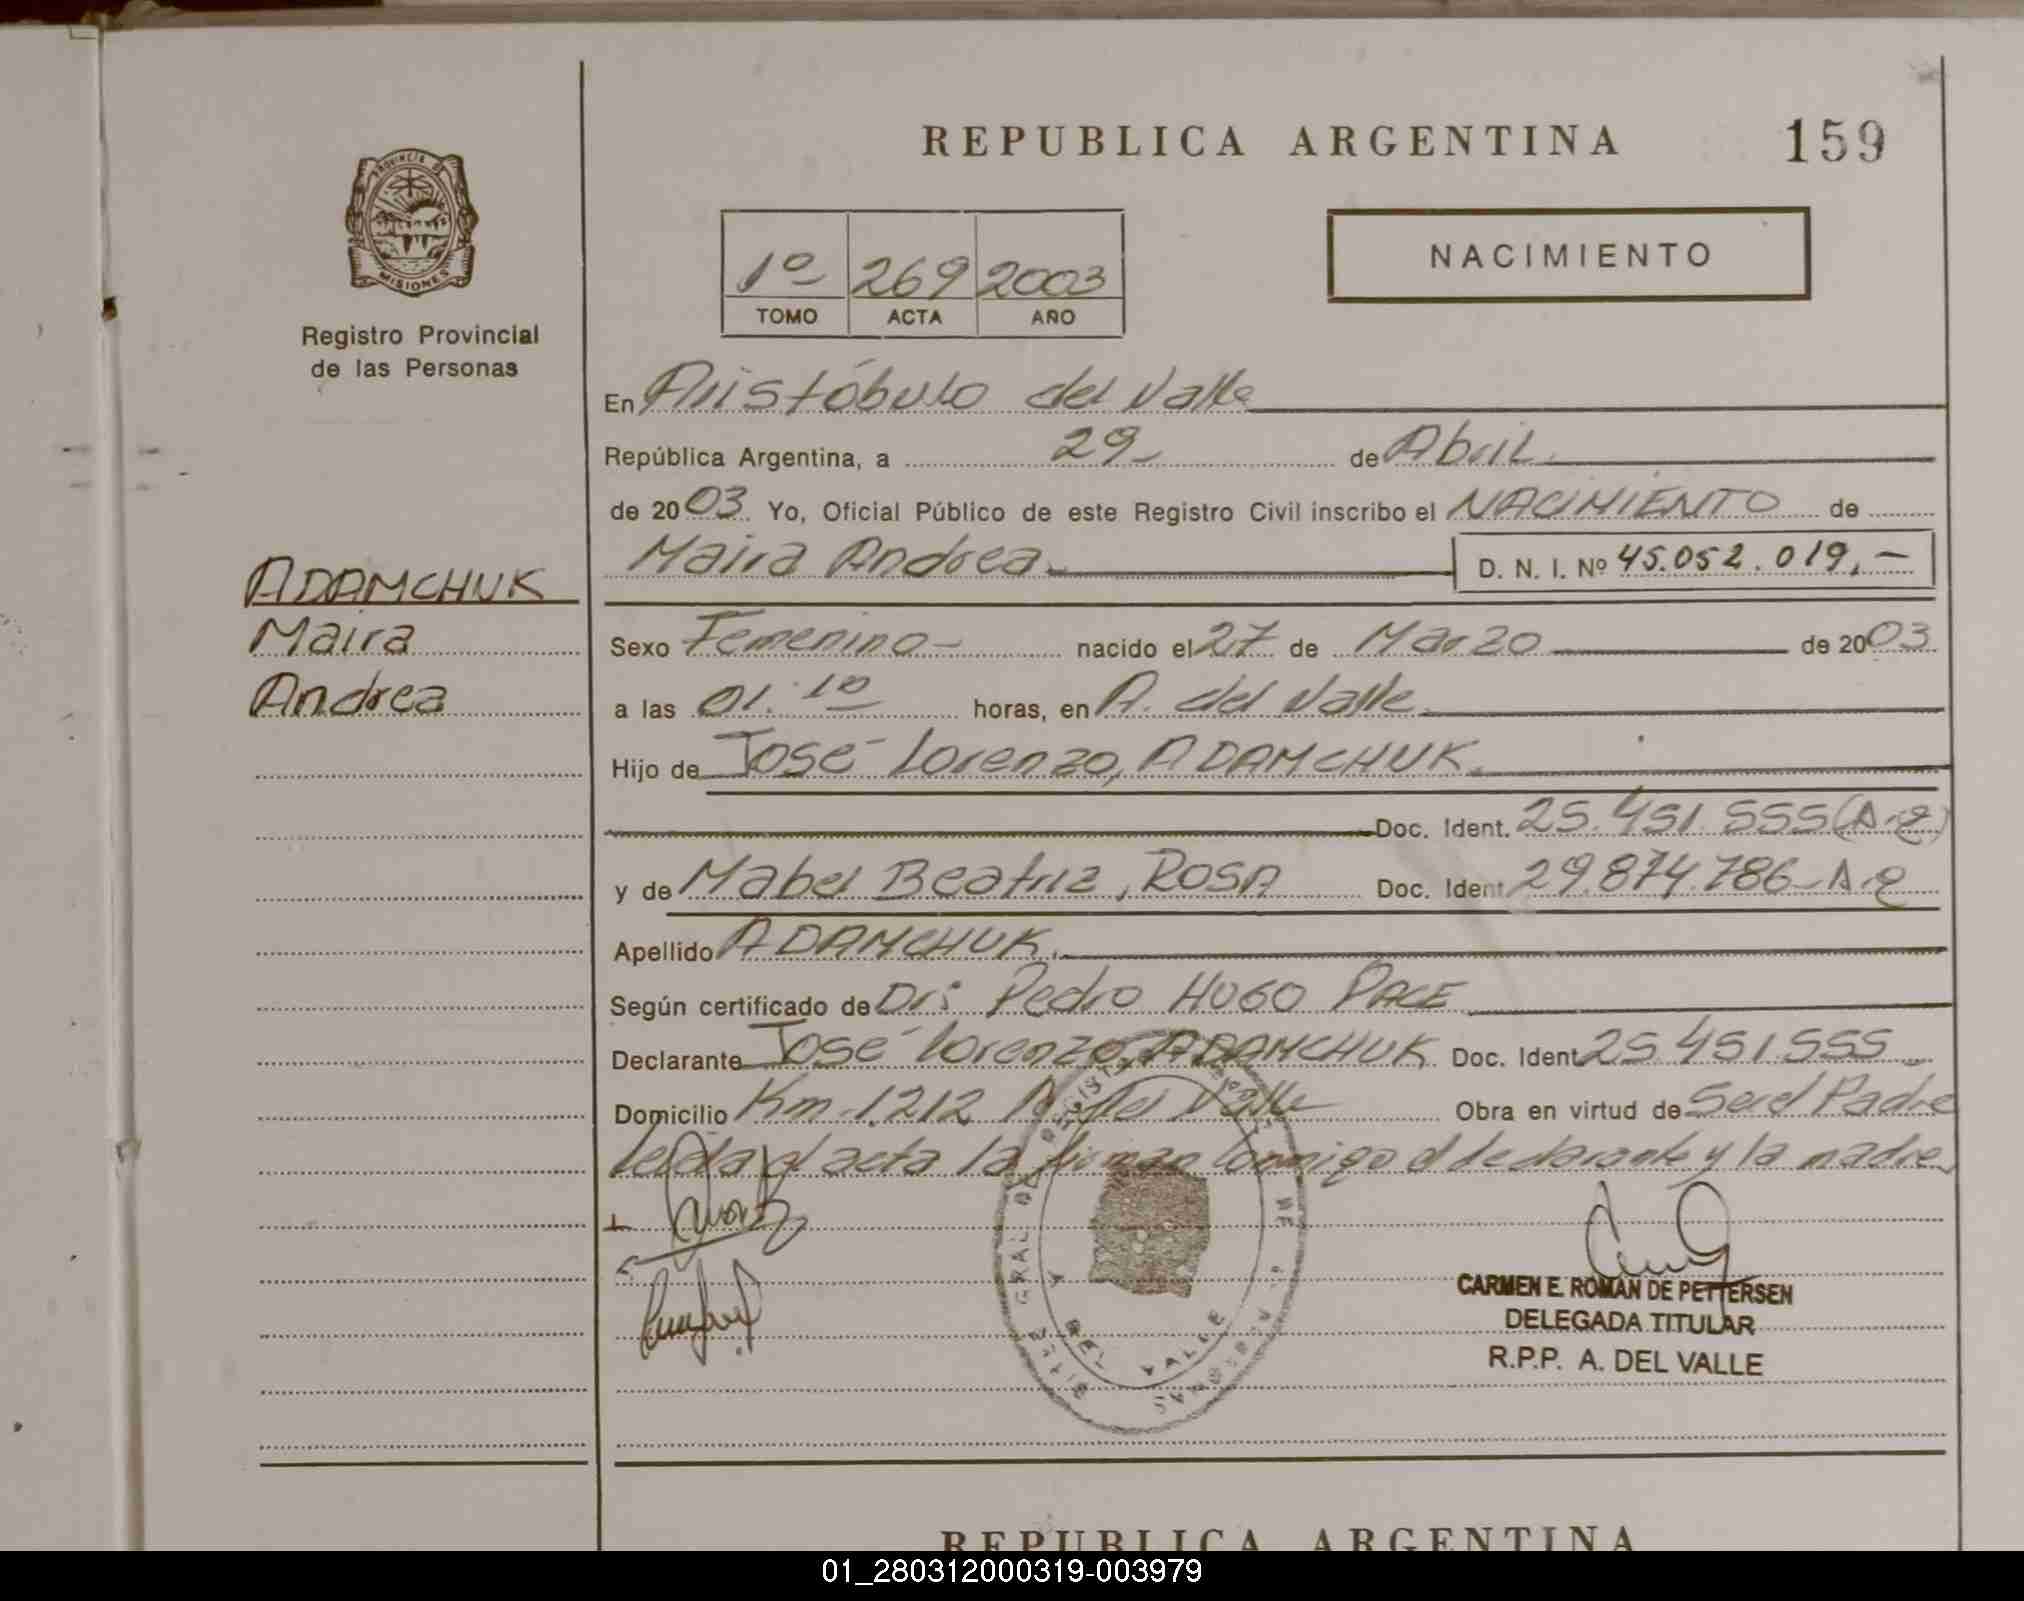 REPUBLICA ARGENTINA
159
PROVINCIA DE
MISIONES
Registro Provincial
de las Personas
NACIMIENTO
1º 269 2003
TOMO ACTA AÑO
En Aristóbulo del Valle
República Argentina, a 29 de Abril
de 2003 Yo, Oficial Público de este Registro Civil inscribo el NACIMIENTO de
Maira Andrea D. N. I. Nº 45.052.019,-
ADAMCHUK
Maira
Andrea
Sexo Femenino- nacido el 27 de Marzo de 2003
a las 01:10 horas, en A. del Valle
Hijo de José Lorenzo, ADAMCHUK
Doc. Ident. 25.451.555
y de Mabel Beatriz, ROSA Doc. Ident 29.874.786
Apellido ADAMCHUK
Según certificado de Dr: Pedro HUGO PACE
Declarante José Lorenzo, ADAMCHUK Doc. Ident 25.451.555
Domicilio Km. 1.212 A. del Valle Obra en virtud de Ser el Padre
Leída el acta la firman conmigo el declarante y la madre
A. DEL VALLE
CARMEN E. ROMAN DE PETTERSEN
DELEGADA TITULAR
R.P.P. A. DEL VALLE
REPUBLICA ARGENTINA
01_280312000319-003979